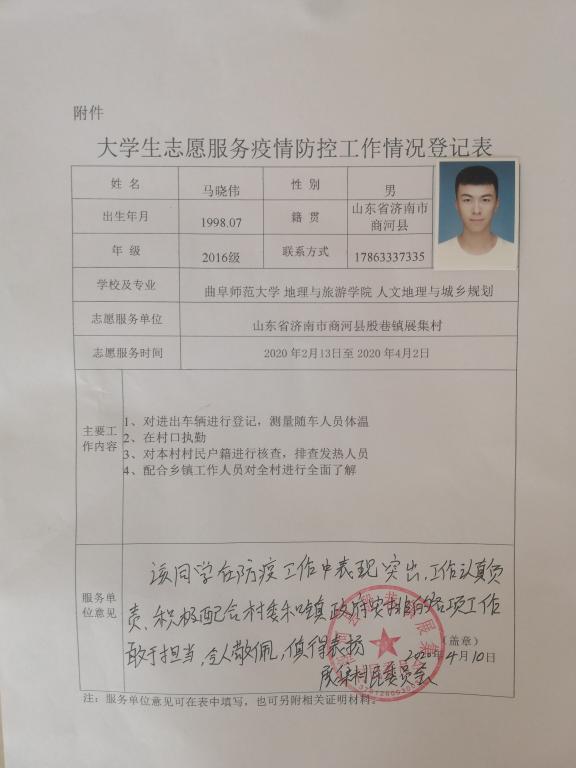 附件
大学生志愿服务疫情防控工作情况登记表
姓 名 马晓伟 性 别 男
出生年月 1998.07 籍 贯 山东省济南市商河县
年 级 2016级 联系方式 17863337335
学校及专业 曲阜师范大学 地理与旅游学院 人文地理与城乡规划
志愿服务单位 山东省济南市商河县殷巷镇展集村
志愿服务时间 2020 年2月13日至 2020 年4月2日
主要工作内容
1、对进出车辆进行登记，测量随车人员体温
2、在村口执勤
3、对本村村民户籍进行核查，排查发热人员
4、配合乡镇工作人员对全村进行全面了解
服务单位意见
该同学在防疫工作中表现突出，工作认真负
责、积极配合村委和镇政府安排的各项工作
敢于担当，令人敬佩，值得表扬
（盖章）
2020年4月10日
展集村民委员会
注：服务单位意见可在表中填写，也可另附相关证明材料。